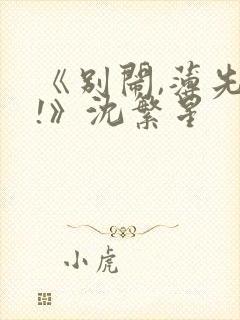 《别闹,薄先
!》沈繁星
小虎